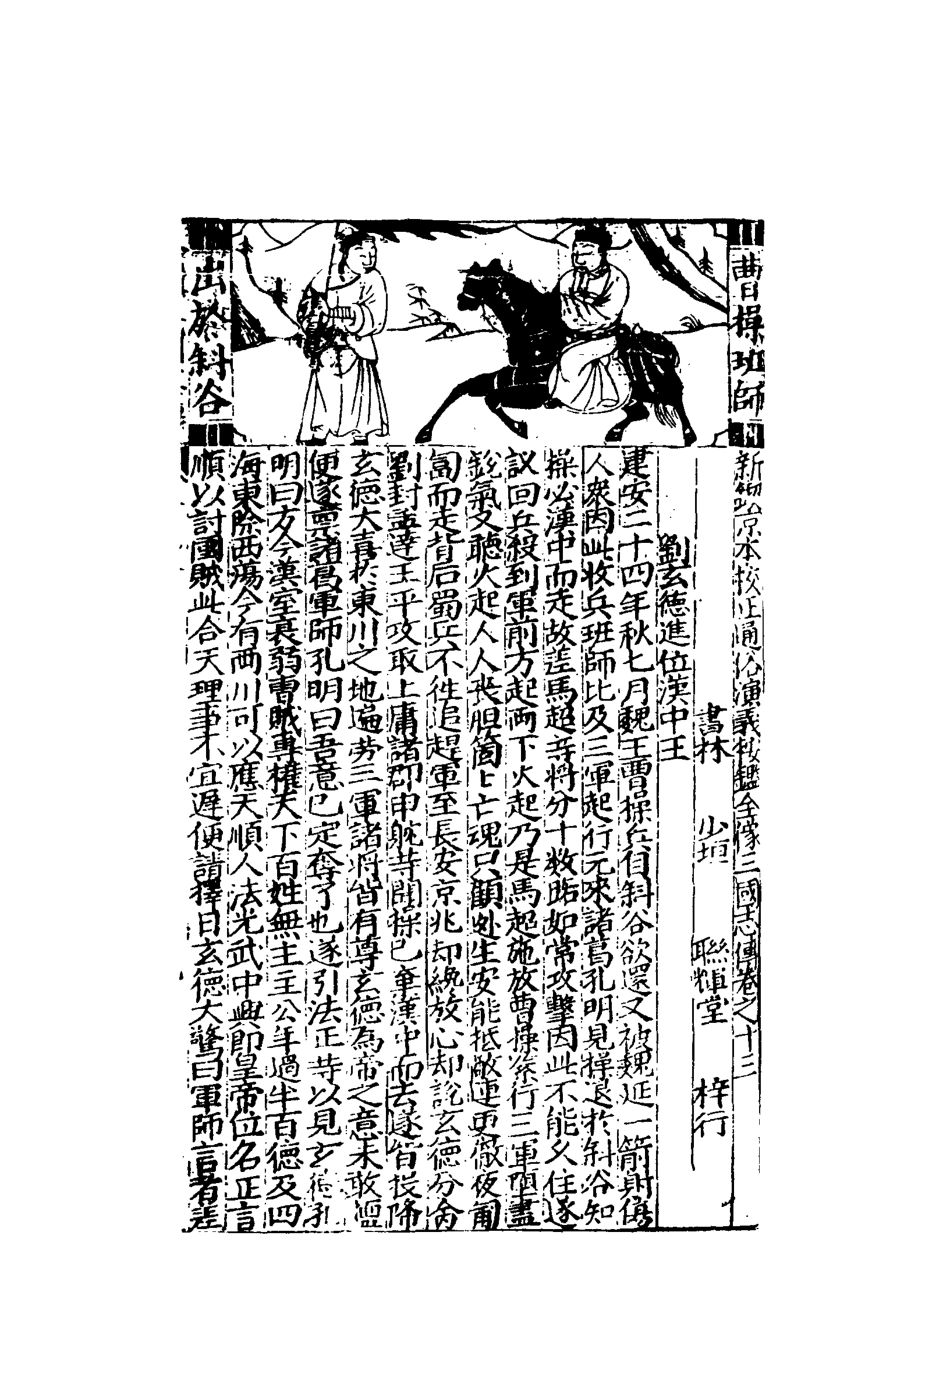 曹操班師
出於斜谷
新刻京本校正通俗演義按鑑全像三國志傳卷之十三
書林 少垣 聯輝堂 梓行
劉玄德進位漢中王
建安二十四年秋七月魏王曹操兵自斜谷欲還又被魏延一箭射傷
人衆因此收兵班師比及三軍起行元來諸葛孔明見操退於斜谷知
操必漢中而走故差馬超等將分十数路如常攻擊因此不能久住遂
議回兵殺到軍前方起両下火起乃是馬超施放曹操条行三軍墮盡
銳氣又聽火起人人丧胆箇〻亡魂只顧逃生安能抵敵連更傲夜匍
匐而走背后蜀兵不徃追趕軍至長安京兆却纔放心却説玄德分付
劉封孟達王平攻取上庸諸郡申躭等聞操已棄漢中而去遂皆投降
玄德大喜於東川之地遍劳三軍諸將皆有尊玄德為帝之意未敢逕
便遂禀諸葛軍師孔明曰吾意已定奪了也遂引法正等以見玄德孔
明曰方今漢室衰弱曹賊專權天下百姓無主主公年過半百德及四
海東除西蕩今有両川可以應天順人法光武中興即皇帝位名正言
順以討國賊此合天理事不宜遲便請擇日玄德大驚曰軍師言者差